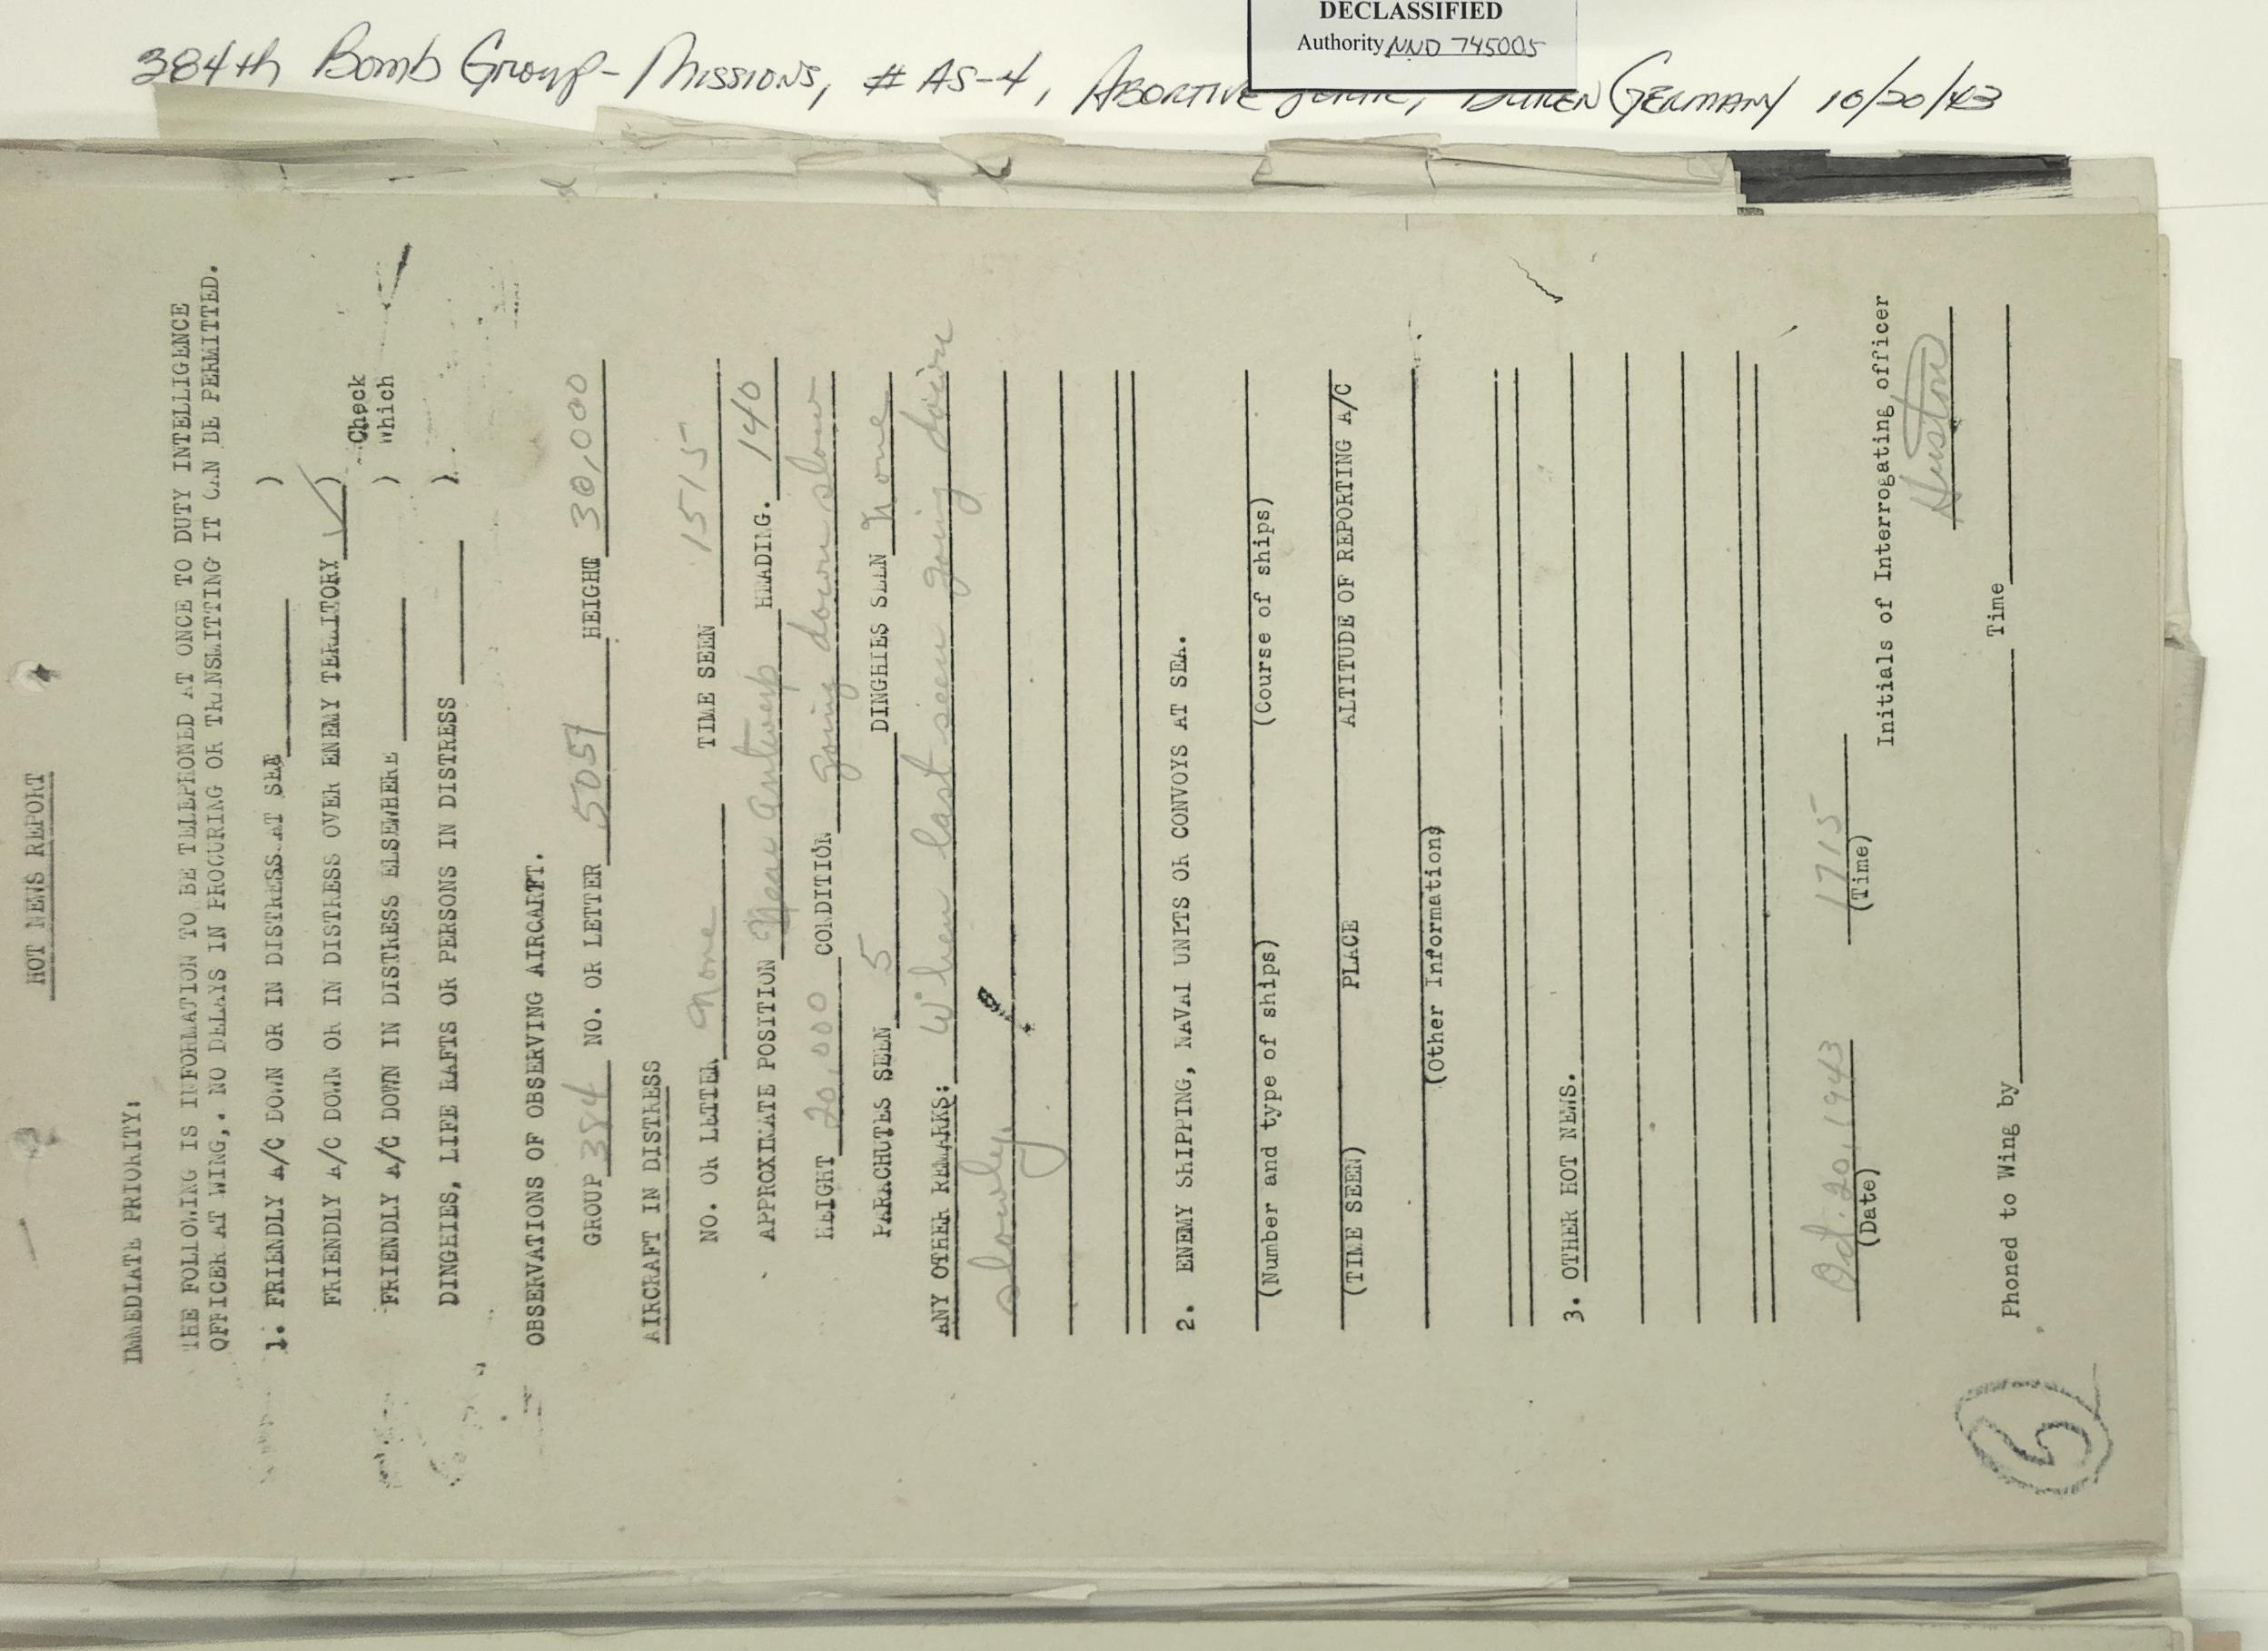 DECLASSIFIED
Authority NND 745005
384th Bomb Group - Missions, # AS-4, Abortive Germany 10/20/43
HOT NEWS REPORT
IMMEDIATE PRIORITY:
THE FOLLOWING IS INFORMATION TO BE TELEPHONED AT ONCE TO DUTY INTELLIGENCE
OFFICER AT WING,. NO DELAYS IN PROCURING OR TRANSMITTING IT CAN BE PERMITTED.
1. FRIENDLY A/C DOWN OR IN DISTRESS AT SEA )
FRIENDLY A/C DOWN OR IN DISTRESS OVER ENEMY TERRITORY ✓ )
Check
FRIENDLY A/C DOWN IN DISTRESS ELSEWHERE ) Which
DINGHIES, LIFE RAFTS OR PERSONS IN DISTRESS )
OBSERVATIONS OF OBSERVING AIRCARFT.
GROUP 384 NO. OR LETTER 5051 HEIGHT 30,000
AIRCRAFT IN DISTRESS
NO. OR LETTER None TIME SEEN 1515
APPROXIMATE POSITION Near Antwerp HEADING. 140
HEIGHT 20,000 CONDITION going down slow
PARACHUTES SEEN 5 DINGHIES SEEN None
ANY OTHER REMARKS: When last seen going down
slowly.
2. ENEMY SHIPPING, NAVAL UNITS OR CONVOYS AT SEA.
(Number and type of ships) (Course of ships)
(TIME SEEN) PLACE ALTITUDE OF REPORTING A/C
(Other Information)
3. OTHER HOT NEWS.
Oct. 20, 1943 1715
(Date) (Time)
Initials of Interrogating officer
Huston
Phoned to Wing by Time
5